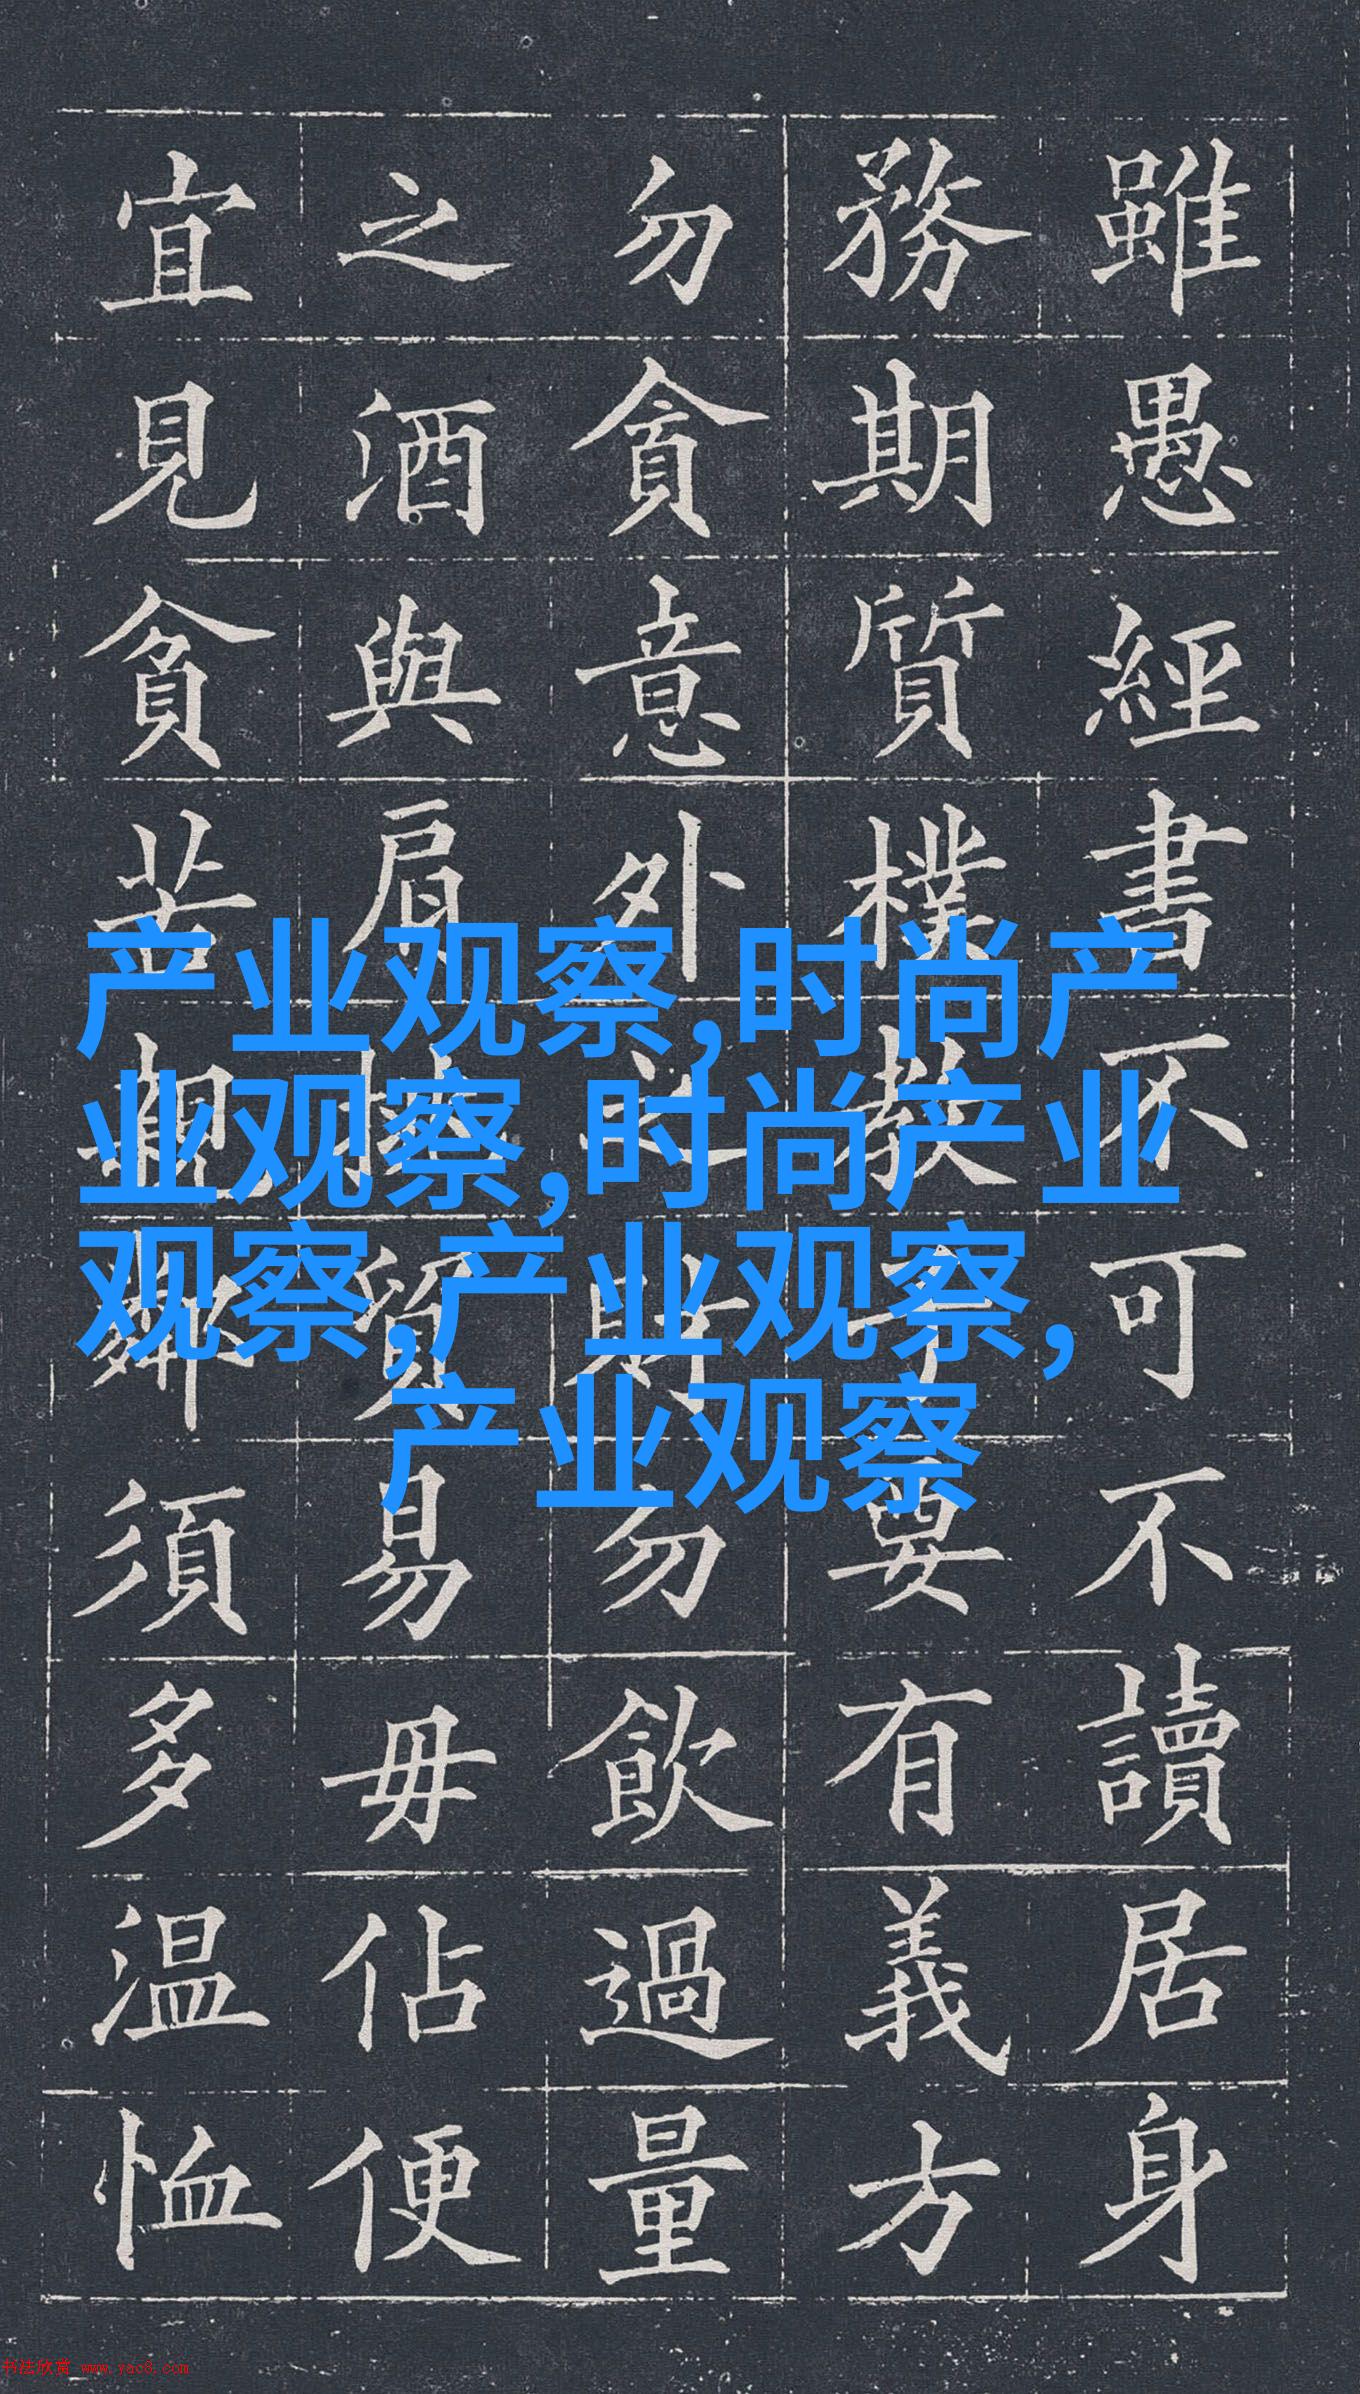 雖愚經書不可不讀居身
務期質樸教子要有義方
勿貪意外之財勿飲過量
之酒與肩挑貿易毋佔便
宜見貧苦親鄰須多温恤
产业观察,时尚产
业观察,时尚产业
观察,产业观察,
产业观察
书法欣赏 www.yac8.com